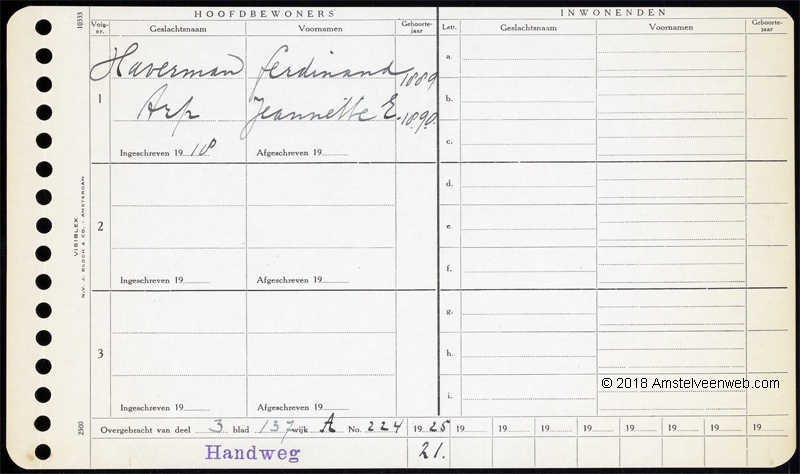 HOOFDBEWONERS
INWONENDEN
Volg-nr. Geslachtsnaam Voornamen Geboorte-jaar
Lett. Geslachtsnaam Voornamen Geboorte-jaar
10333
Haverman Ferdinand 1889
1 Arp Jeannette E. 1890
Ingeschreven 19 18 Afgeschreven 19
2
Ingeschreven 19 Afgeschreven 19
3
Ingeschreven 19 Afgeschreven 19
a.
b.
c.
d.
e.
f.
g.
h.
i.
VISIBLEX
N.V. J. BLOCH & CO. - AMSTERDAM
2500
© 2018 Amstelveenweb.com
Overgebracht van deel 3 blad 137 wijk A No. 224 19 25 19 19 19 19 19 19 19 19
Handweg 21.